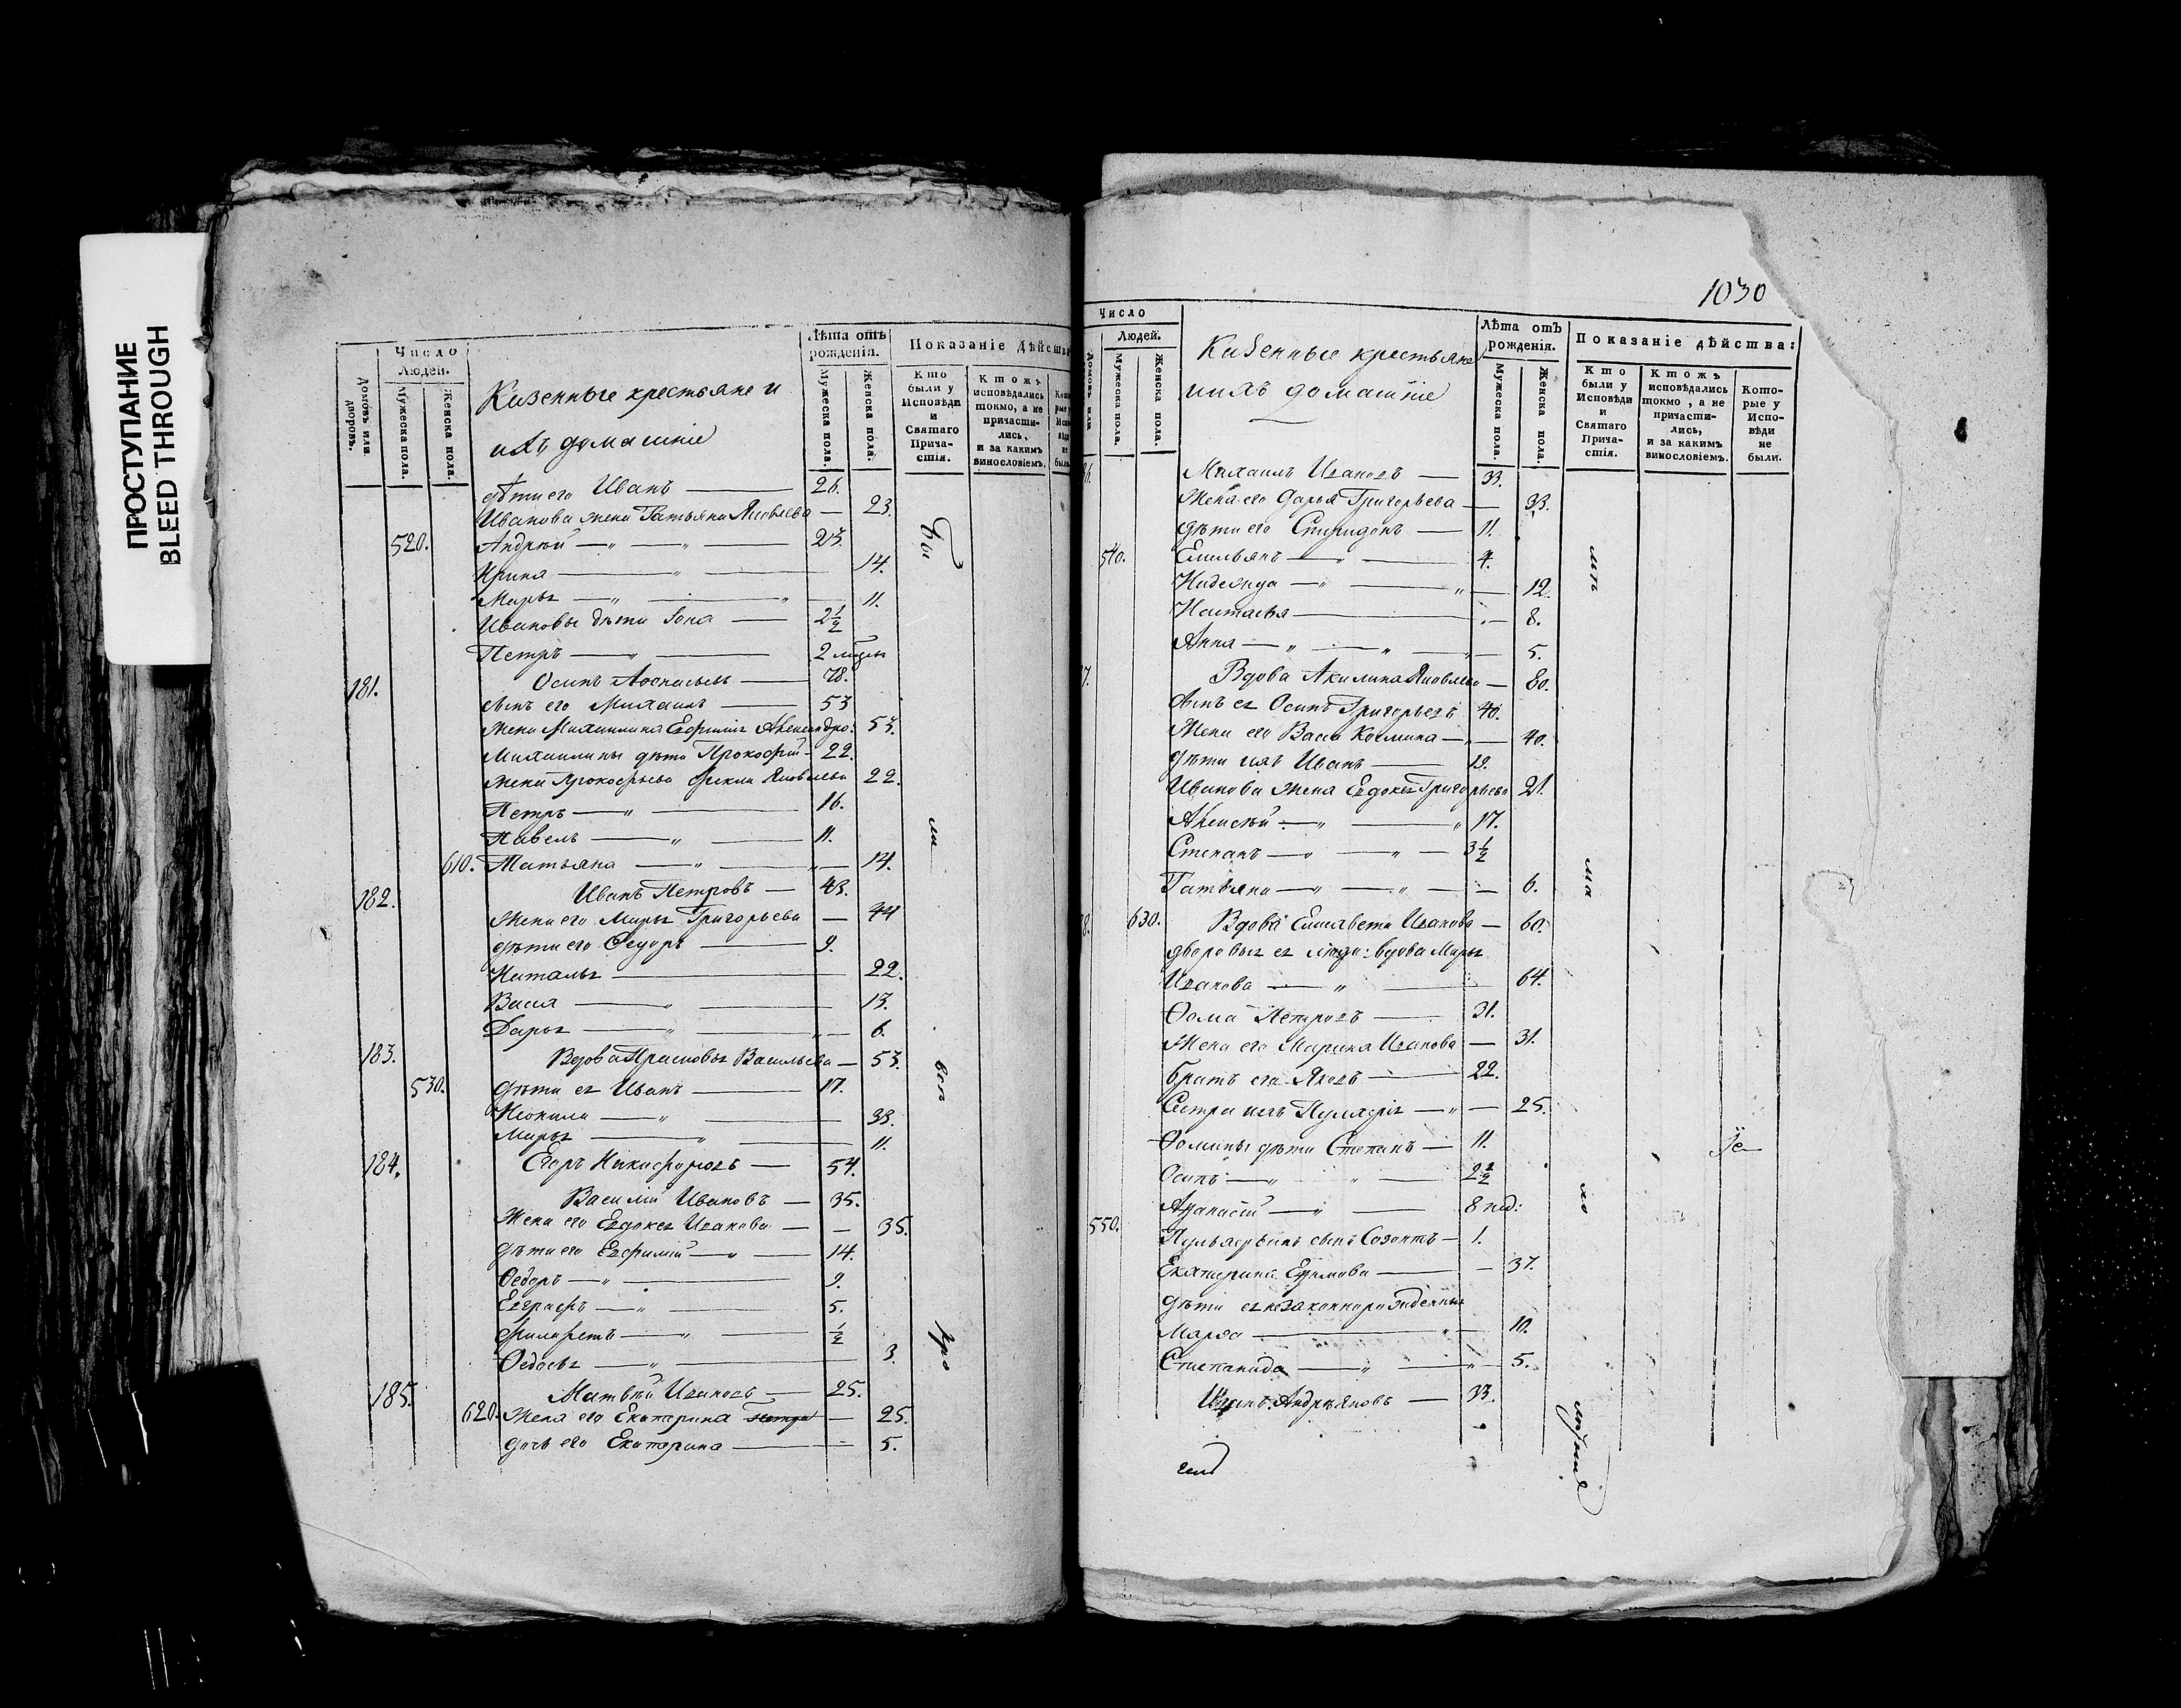 ПРОСТУПАНИЕ
BLEED THROUGH
Число
Людей.
Домовъ или дворовъ.
Мужеска пола.
Женска пола.
Казенные крестьяне и
ихъ домашніе
Лѣта отъ рожденія.
Мужеска пола.
Женска пола.
Показаніе Дѣйства
Кто были у Исповѣди и Святаго Прича-стія.
Ктожъ исповѣдались токмо, а не причасти-лись, и за какимъ винословіемъ.
дѣти его Иванъ 26.
Иванова жена Татьяна Яковлева 23.
520. Андрей 23.
Ирина 14.
Марья 11.
Ивановы дѣти Іона 2 1/2
Петръ 2
181. Осипъ Аѳонасьевъ 78.
сынъ его Михаилъ 53
жена Михаилина Евфимія Александро: 53.
Михаилины дѣти Прокофій 22.
жена Прокофьева Фекла Яковлева 22.
Петръ 16.
Павелъ 11.
610. Татьяна 14.
182. Иванъ Петровъ 43.
жена его Марья Григорьева 44
дѣти его Ѳедоръ 9.
Наталья 22.
Васса 13.
Дарья 6.
183. Вдова Прасковья Васильева 53.
530. дѣти ея Иванъ 17.
Неонила 33.
Марья 11.
184. Егоръ Никифоровъ 54.
Василій Ивановъ 35.
жена его Евдокея Иванова 35.
дѣти его Евфимій 14.
Ѳедоръ 9.
Евграфъ 5.
Филаретъ 1/2
Ѳедосья 3.
185. Матвѣй Ивановъ 25.
620. жена его Екатерина 25.
дочь его Екатерина 5.
вси
ли
1030
Число
Людей.
Мужеска пола.
Женска пола.
Казенные крестьяне
и ихъ домашніе
Лѣта отъ рожденія.
Мужеска пола.
Женска пола.
Показаніе дѣйства:
Кто были у Исповѣди и Святаго Прича-стія.
Ктожъ исповѣдались токмо, а не причасти-лись, и за какимъ винословіемъ.
Кото-рые у Испо-вѣди не были.
Михаилъ Ивановъ 33.
Жена его Дарья Григорьева 33.
дѣти его Спиридонъ 11.
540. Емельянъ 4.
Надежда 12.
Настасья 8.
Анна 5.
Вдова Акилина Яковлева 80.
сынъ ея Осипъ Григорьевъ 40.
Жена его Васса Космина 40.
дѣти ихъ Иванъ 19.
Иванова жена Евдокея Григорьева 21.
Алексѣй 17.
Степанъ 3 1/2
Татьяна 6.
630. Вдова Елисавета Иванова 60.
дворовыя ея люди: вдова Марья
Иванова 64.
Ѳома Петровъ 31.
Жена его Марина Иванова 31.
братъ его Яковъ 22.
Сестра ихъ Пульхерія 25.
Ѳомины дѣти Степанъ 11.
Осипъ 2 1/2
Аѳанасій 8 нед:
550. Пульхерьинъ сынъ Созонтъ 1.
Екатерина Ефимова 37.
дѣти ея незаконнорожденныя
Марѳа 10.
Степанида 5.
Иванъ Андреяновъ 33.